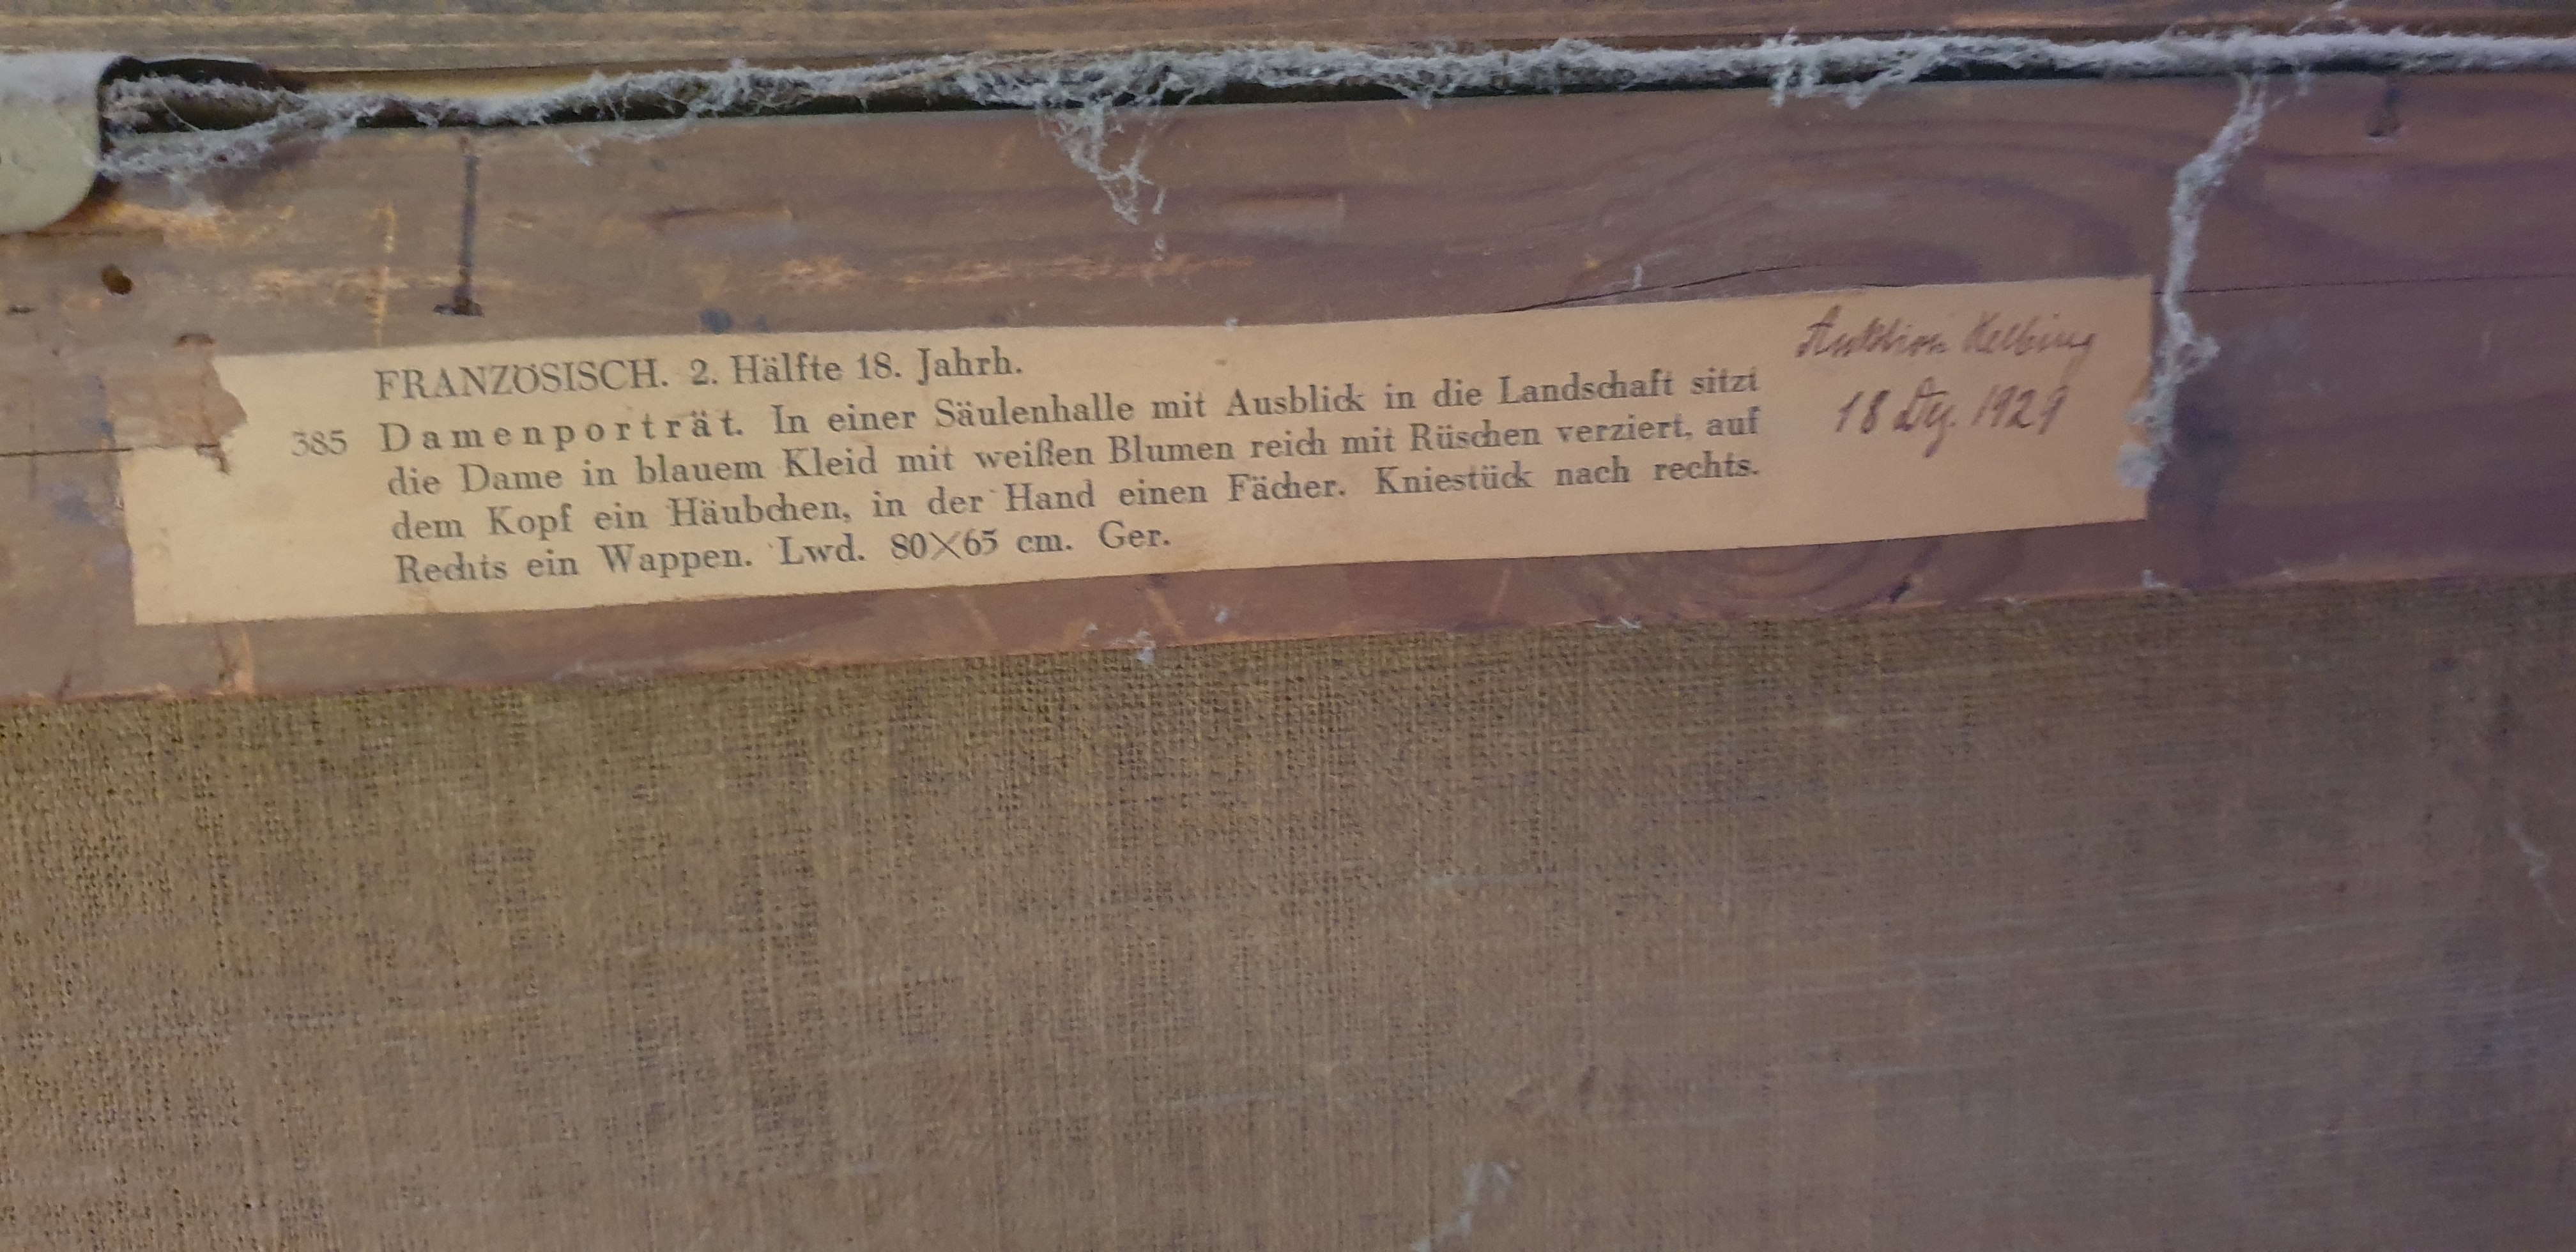 FRANZÖSISCH. 2. Hälfte 18. Jahrh.
385 Damenporträt. In einer Säulenhalle mit Ausblick in die Landschaft sitzt
die Dame in blauem Kleid mit weißen Blumen reich mit Rüschen verziert, auf
dem Kopf ein Häubchen, in der Hand einen Fächer. Kniestück nach rechts.
Rechts ein Wappen. Lwd. 80×65 cm. Ger.
Auktion Helbing
18 Dz. 1929